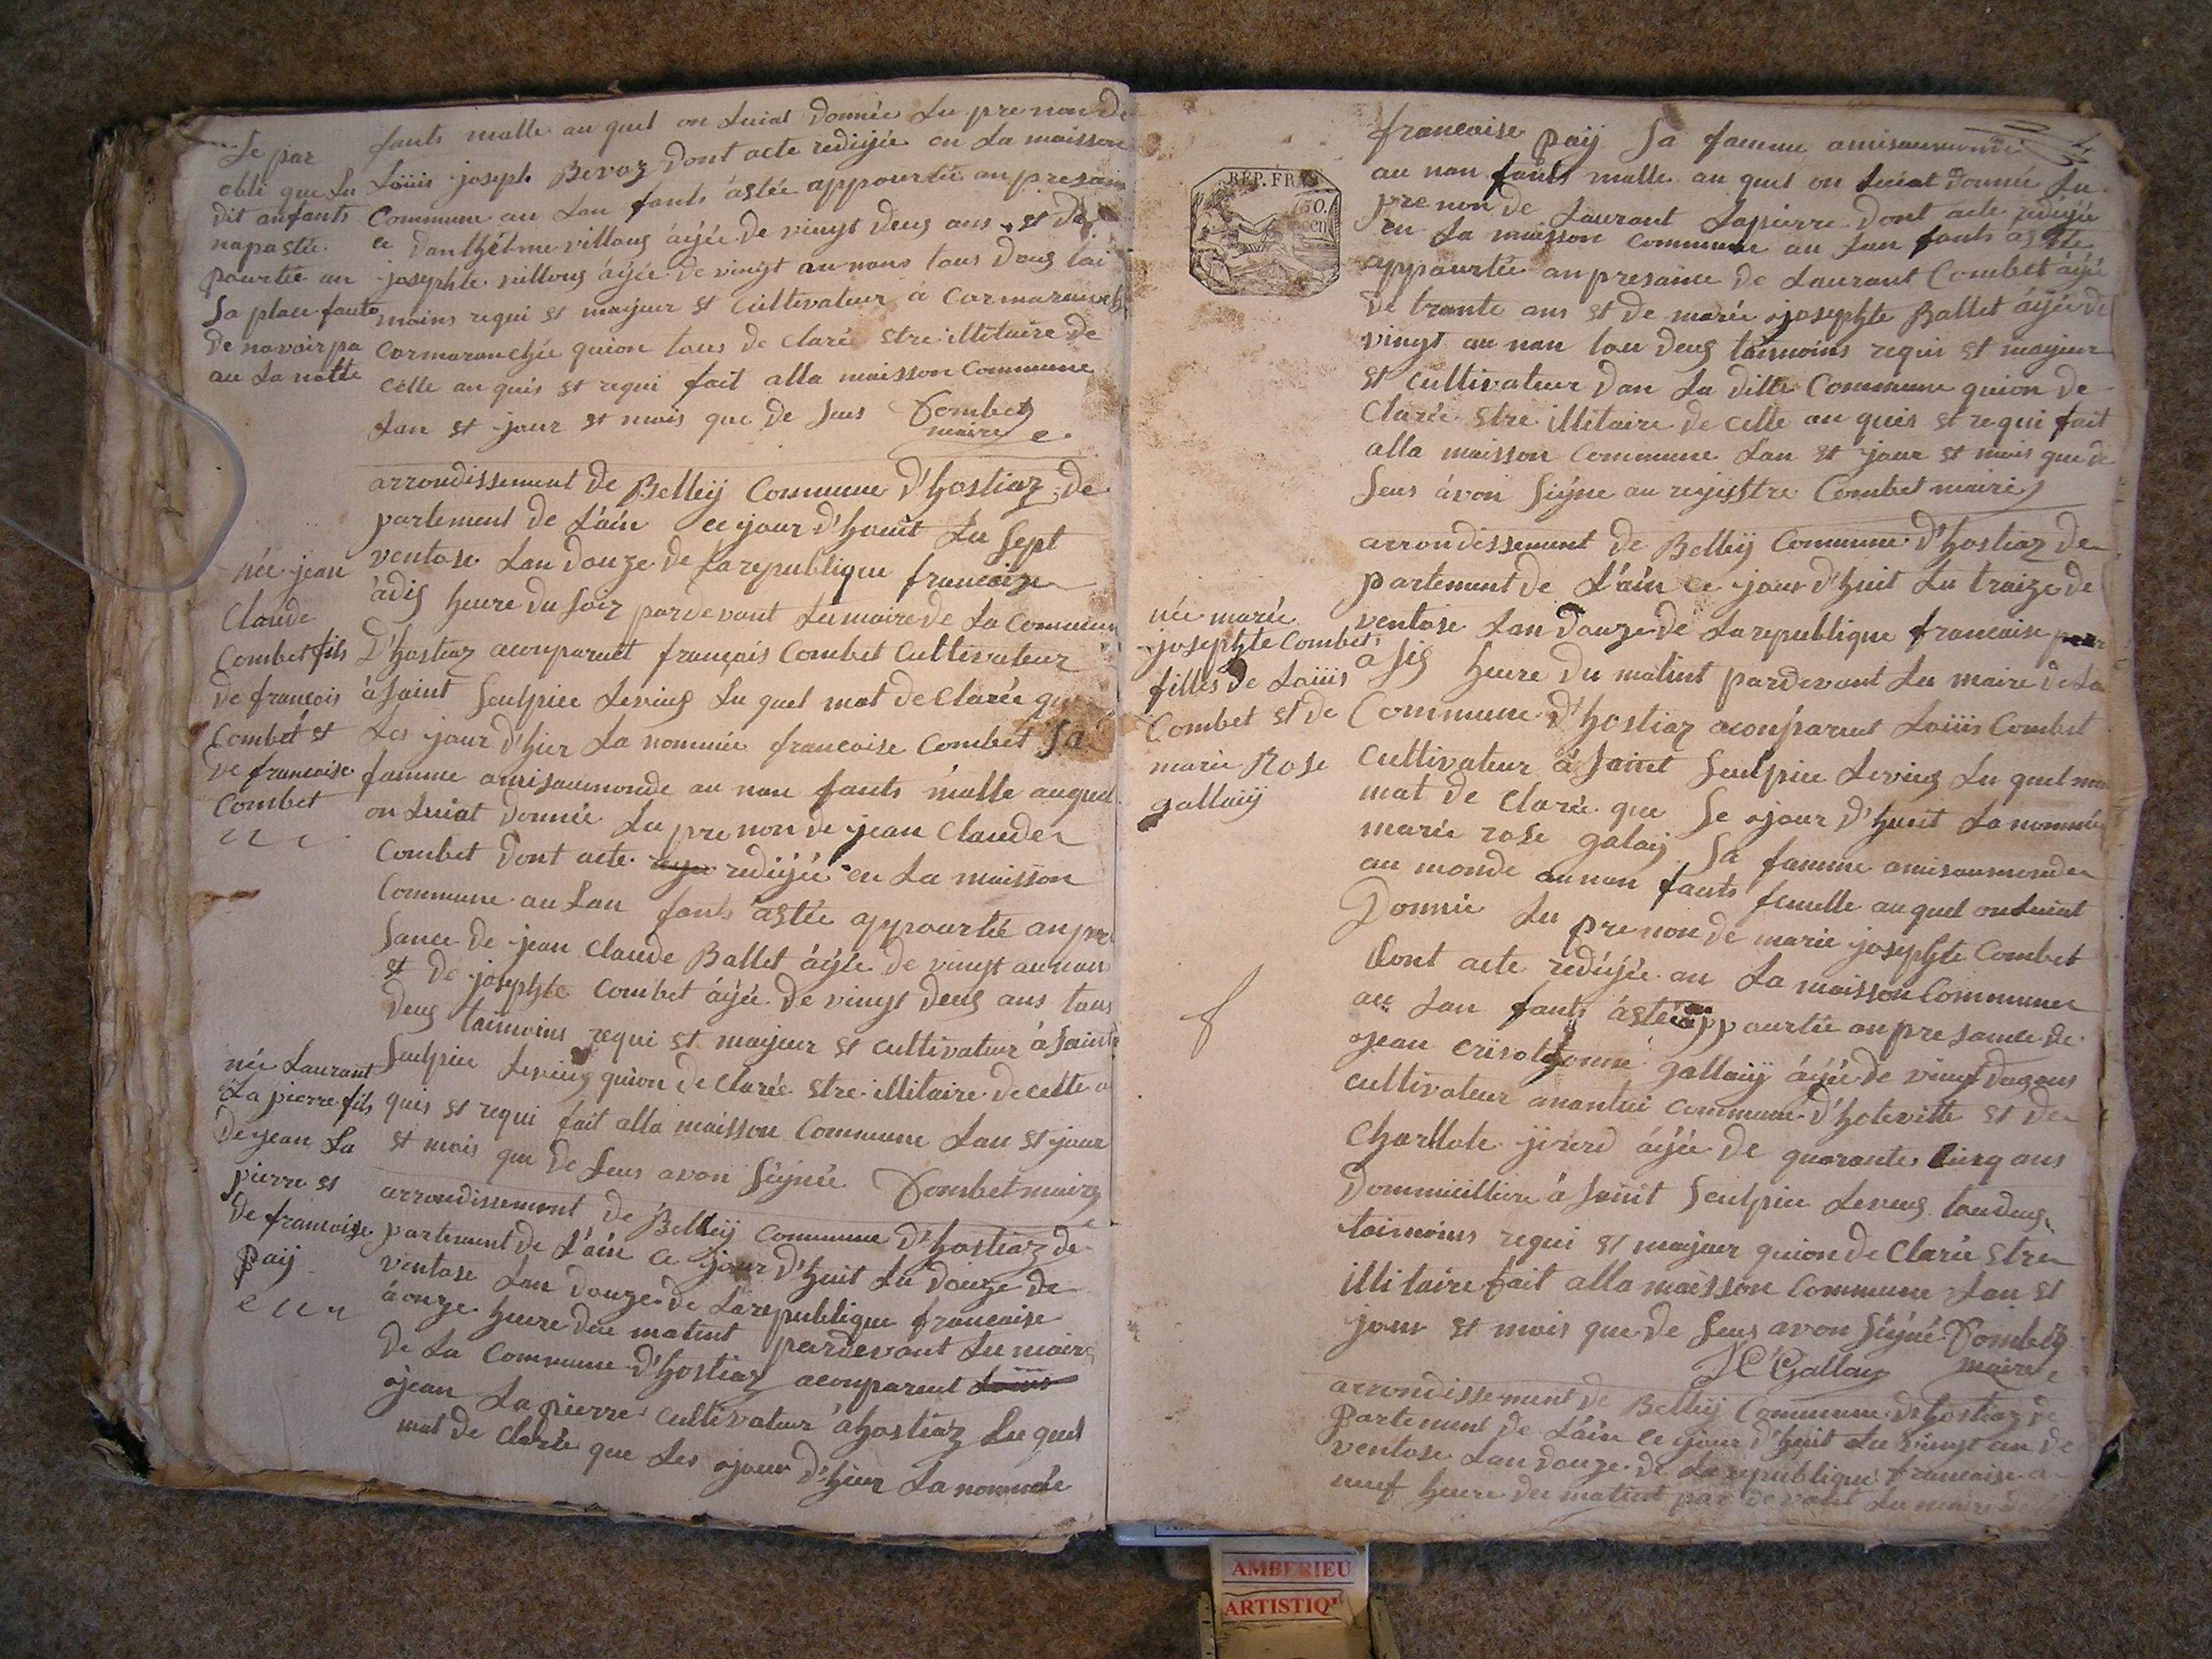 Se par
obli que Lu
dit anfants
napastée
pourtée an
Sa place faute
de navoir pa
au La notte
fants malle au quel on Luiat Donnée Lu prenon de
Loüis joseph Bevoz Dont acte redijée en La maisson
Commune au Lan fants àstée appourtée an presan
ce Danthelme villons àÿée de vingt deus ans st de
josephte villons àÿée de vingt au nans tous Dous tai
moins requi st majeur st Cultivateur a Cormaranch
Cormaranchée quion tous de clarée stre illitaire de
Celle an quis st requi fait alla maisson Commune
Lan st jour st mois que de Sus Combet
maire
née jean
Claude
Combet fils
de francois
Combet st
de francoise
Combet
arrondissement de Belleÿ Commune d'hostiaz de
partement de L'ain ce jour d'huit Lu Sept
ventose Lan Douze de La republique francaize
àdis heure du Soir pardevant Lumaire de La Commun
D'hostiaz aconparuêt françois Combet Cultivateur
à Saint Seulpice Levieus Lu quel mat de clarée qu
Les jour d'hier La nommée francoise Combet Sa
famme amisaumonde au nan fants malle auquel
on Luiat Donnée Lu prenon de jean Claude
Combet Dont acte redijée en La maisson
Commune au Lan fants àstée appourtée an pre
sance de jean Claude Ballet àÿée de vingt aunans
st de josephte Combet àÿée de vingt deus ans tous
Deus taimoins requi st majeur st cultivateur à Saint
Seulpice Levieus quion de clarée stre illitaire de cette a
quis st requi fait alla maisson Commune Lan st jour
st mois que de Sus avon Siÿnée Combet maire
née Laurant
La pierre fils
de jean La
pierre st
de francoise
Paÿ
arrondissement de Belleÿ Commune D'hostiaz de
partement de L'ain ce jour d'huit Lu douze de
ventose Lan douze de La republique francaise
àonze heure du matint pardevant Lu maire
de La Commune d'hostiaz aconparent Loüis
jean La pierre cultivateur àhostiaz Lu quel
mat de clarée que Les jour d'hier La nommée
REP. FRA
francoise paÿ Sa famme amisaumonde
au nan fants malle au quel on Luiat donnée Lu
prenon de Laurant Lapierre Dont acte redijée
en La maisson commune au Lan fants àstée
appourtée anpresance de Laurant Combet àÿée
de trante ans st de marie josephte Ballet àÿée de
vingt au nan tou deus taimoins requi st majeur
st cultivateur dan La ditte Commune quion de
clarée stre illitaire de cette an quis st requi fait
alla maisson Commune Lan st jour st mois que de
Sus àvon Siÿne au rejistre Combet maire
née marie
josephte Combet
filles de Loüis
Combet st de
marie Rose
gallaÿ
arrondissement de Belleÿ Commune d'hostiaz de
partement de L'ain ce jour d'huit Lu traize de
ventose Lan douze de La republique francaise
a sis heure du matint pardevant Lu maire de La
Commune d'hostiaz aconparent Loüis Combet
Cultivateur à Sainet Seulpice Levieus Lu quel
mat de clarée que Se jour d'huit La nommée
marie rose galaÿ Sa famme amisaumonde
au monde aunan fants femelle auquel onLuiat
Donnée Lu prenon de marie josephte Combet
Dont acte redijée an La maisson Commune
au Lan fants àstée appourtée anpresance de
jean gallaÿ àÿée de vingt
cultivateur commune d'hoteville st de
Charllote àÿée de quarante Cinq ans
Dommicilliere à Saint Seulpice Levieus tou deus
taimoins requi st majeur quion de Clarée stre
illitaire fait alla maisson Commune Lan st
jour st mois que de Sus avon Siÿnée Combet
JC Gallay maire
arrondissement de Belleÿ Commune d'hostiaz de
partement de L'ain ce jour d'huit Lu vingt un de
ventose Lan douze de La republique francaise a
neuf heure du matint par devant Lu maire d
AMBERIEU
ARTISTIQ